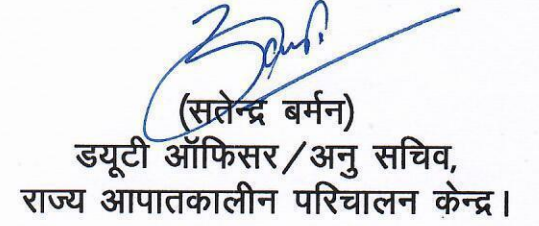 (सतेन्द्र बर्मन)
डयूटी ऑफिसर/अनु सचिव,
राज्य आपातकालीन परिचालन केन्द्र।